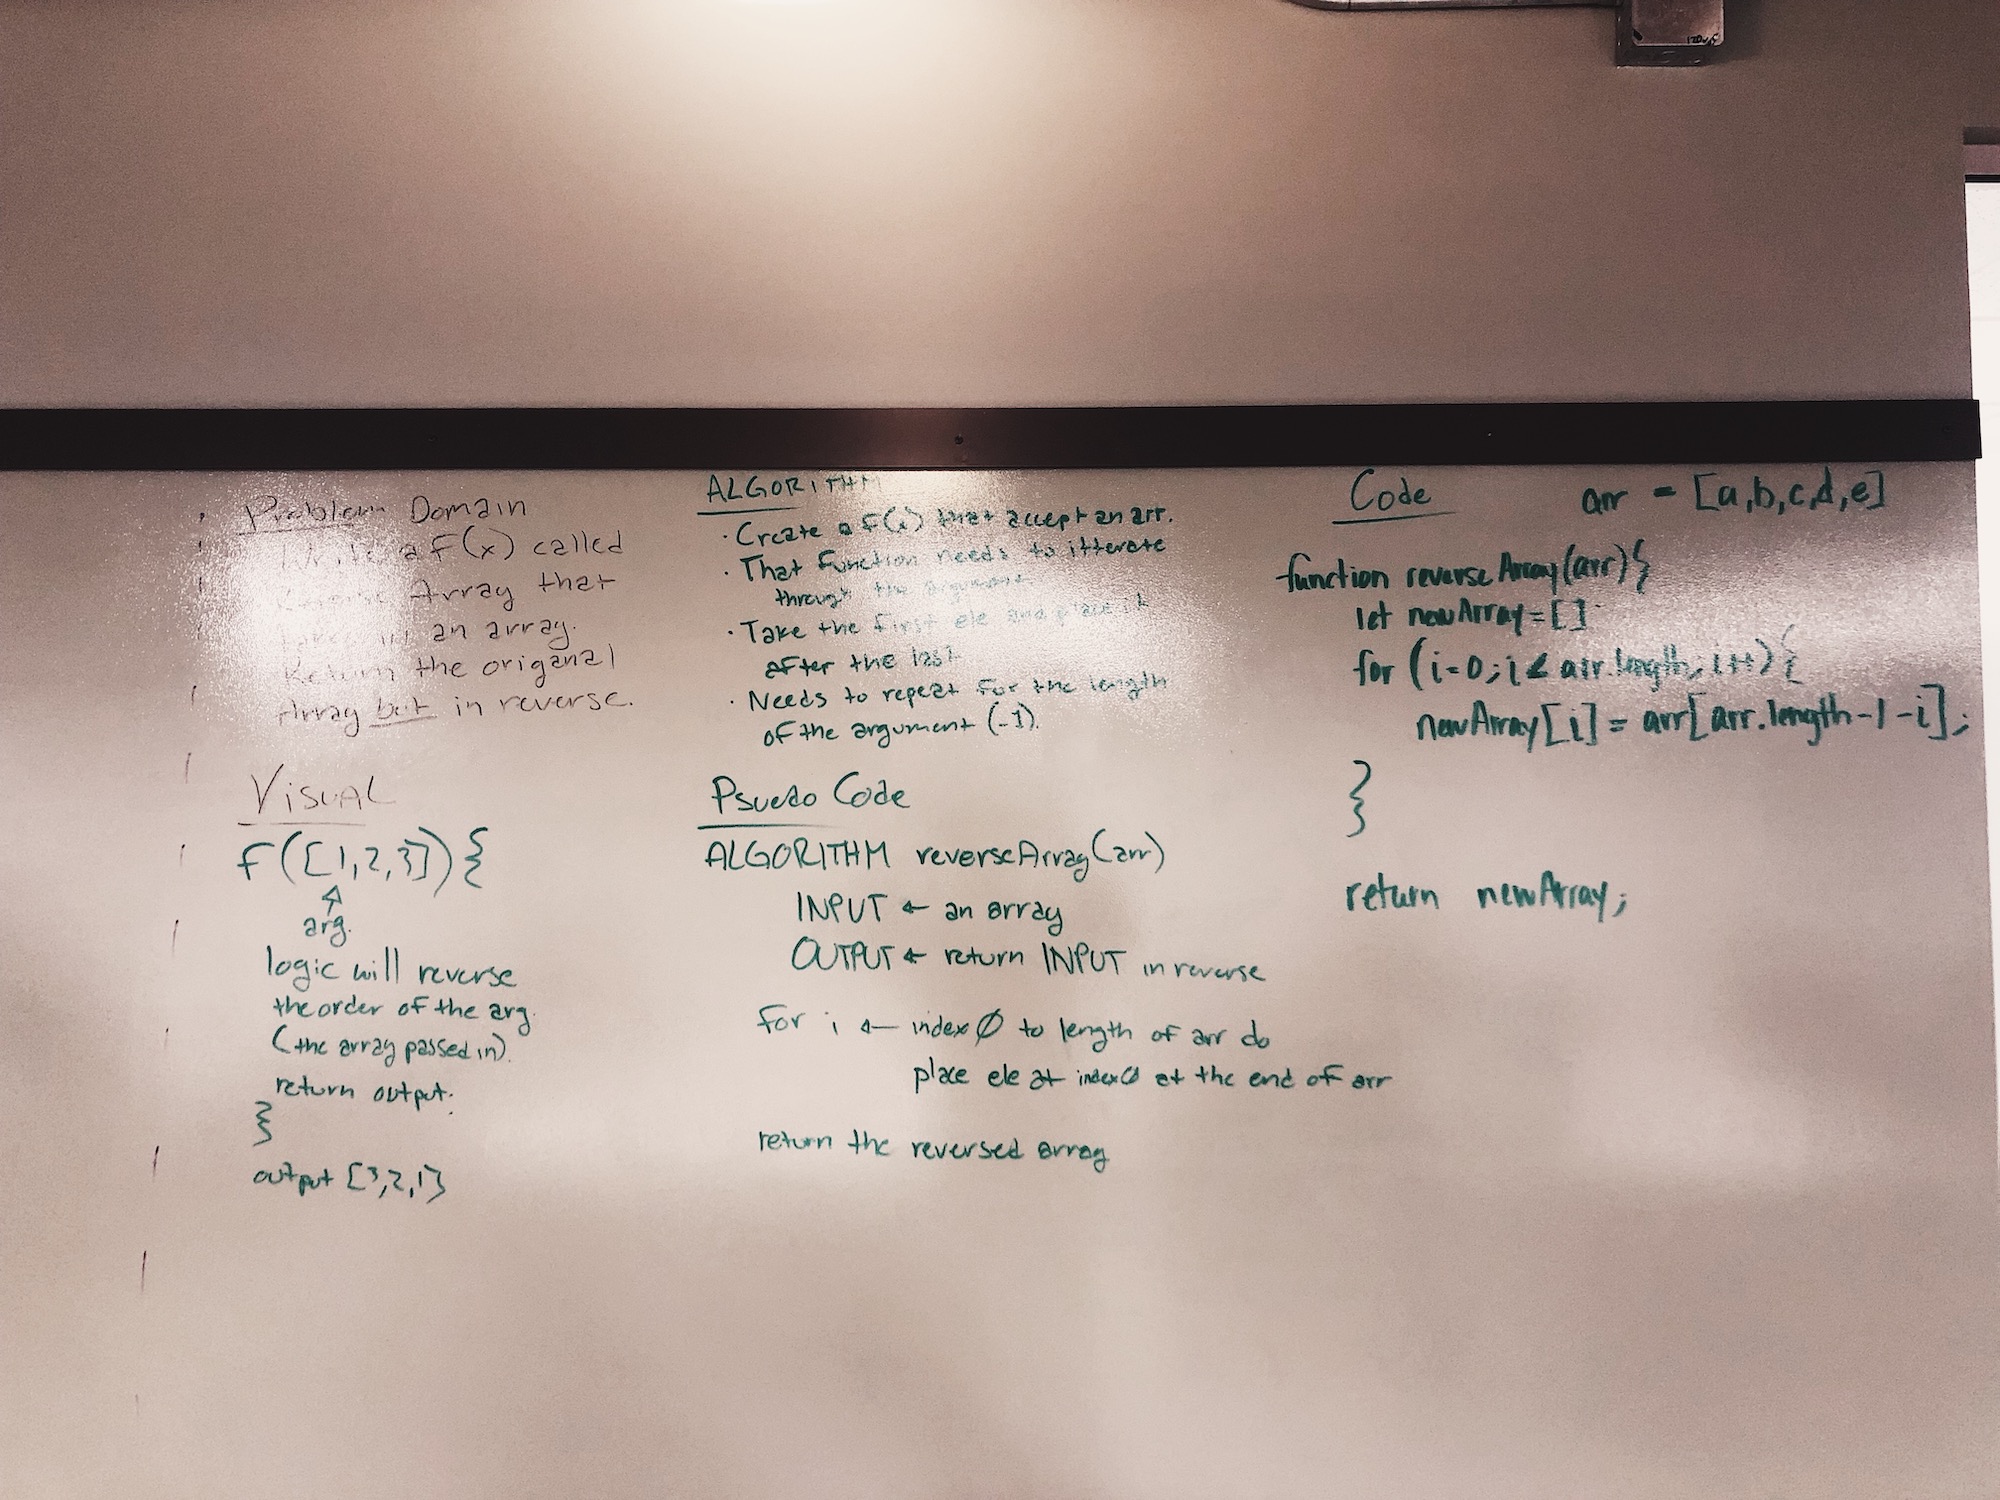 Problem Domain
Write a f(x) called
Reverse Array that
takes in an array.
Return the origanal
Array but in reverse.
VISUAL
f([1,2,3]){
arg.
logic will reverse
the order of the arg.
(the array passed in).
return output.
}
output [3,2,1]
ALGORITHM
· Create a f(x) that accept an arr.
· That function needs to itterate
through the argument
· Take the first ele and place it
after the last
· Needs to repeat for the length
of the argument (-1).
Psuedo Code
ALGORITHM reverseArray(arr)
INPUT ← an array
OUTPUT ← return INPUT in reverse
for i ← index 0 to length of arr do
place ele at index 0 at the end of arr
return the reversed array
Code arr = [a,b,c,d,e]
function reverseArray(arr){
let newArray=[]
for (i=0; i < arr.length; i++){
newArray[i] = arr[arr.length-1-i];
}
}
return newArray;